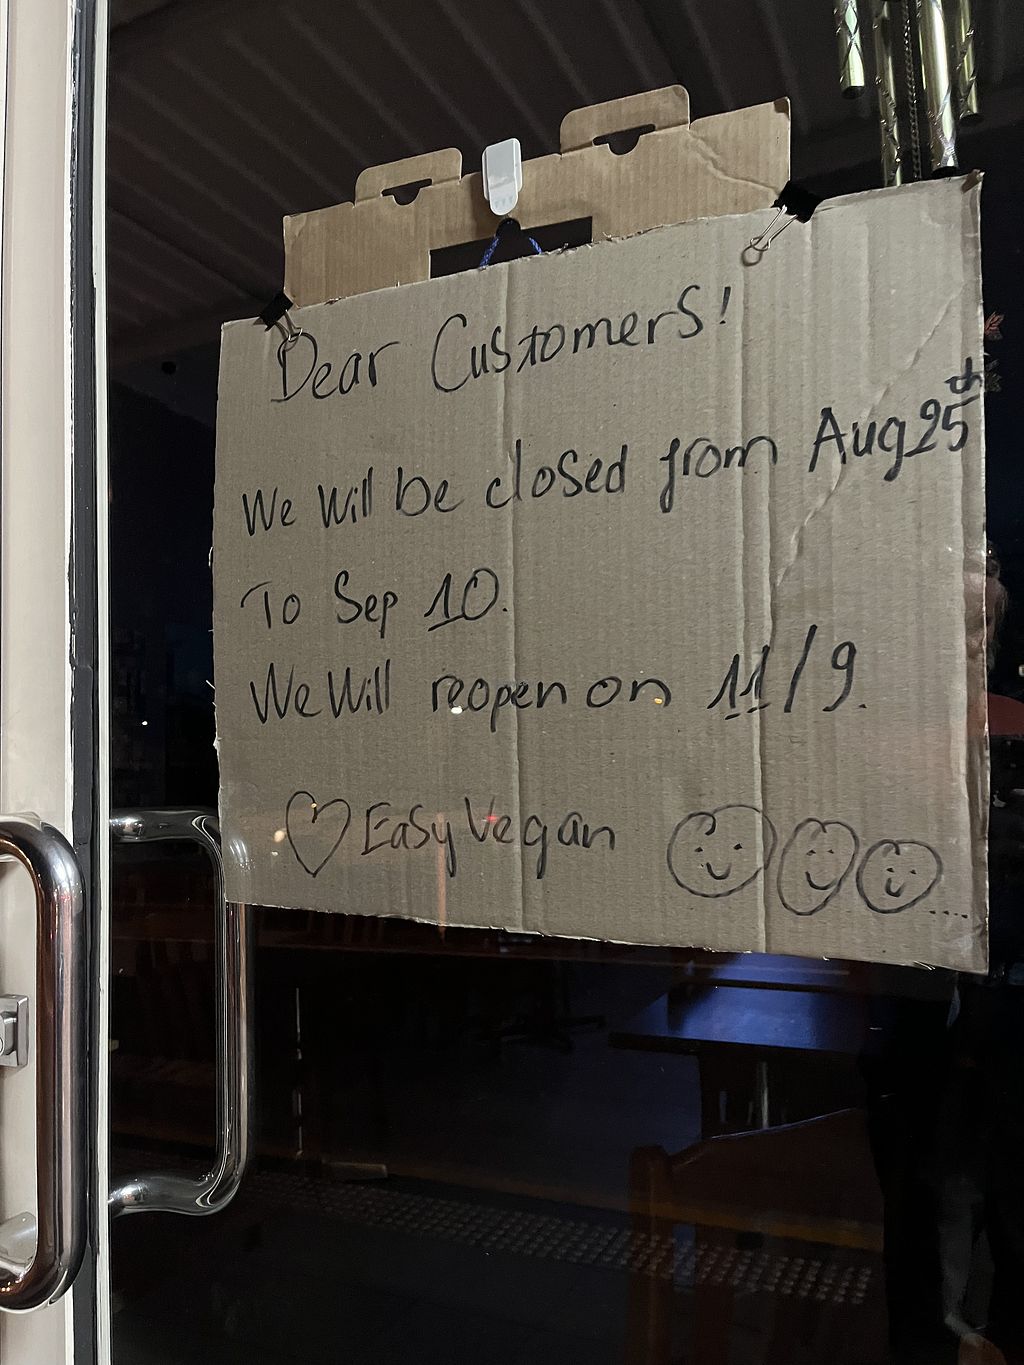 Dear Customers!
We will be closed from Aug 25th
To Sep 10.
We Will reopen on 11/9.
♡ Easy Vegan